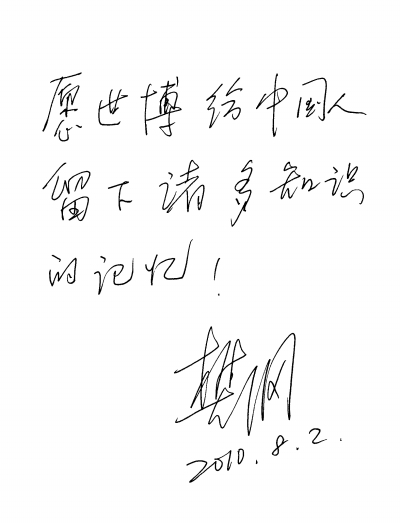 愿世博给中国人
留下诸多知识
的记忆！
樊纲
2010.8.2.